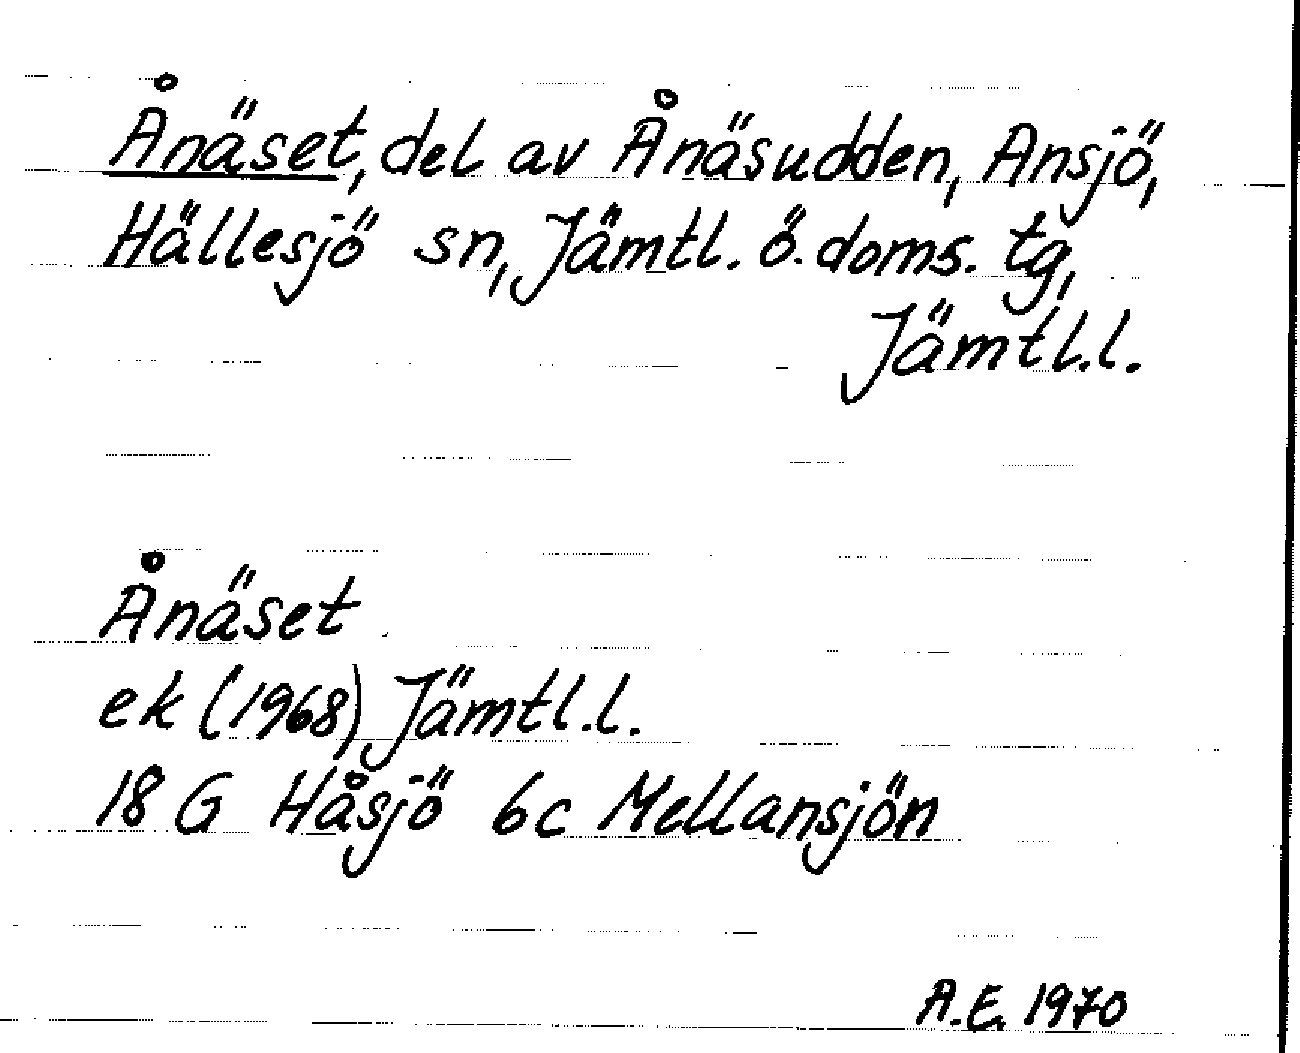 Ånäset, del av Ånäsudden, Ansjö,
Hällesjö sn, Jämtl. ö. doms. tg,
Jämtl.l.
Ånäset
ek (1968) Jämtl.l.
18 G Håsjö 6c Mellansjön
A.E. 1970